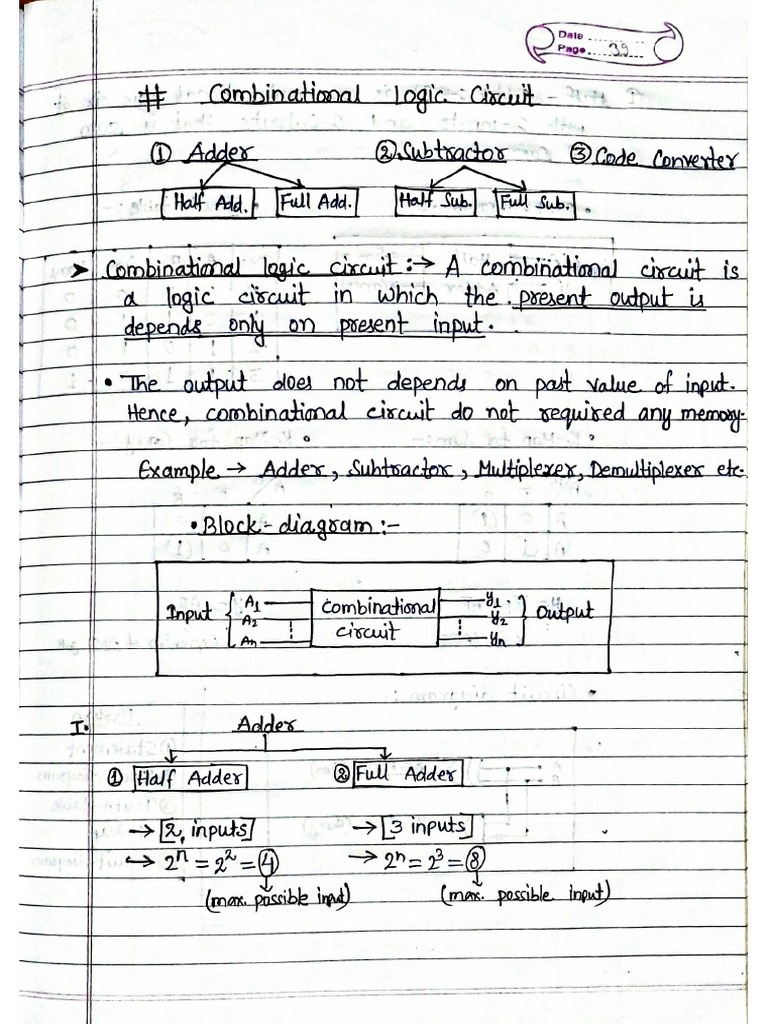 Date
Page 39
# Combinational Logic Circuit
① Adder ② Subtractor ③ Code Converter
Half Add. Full Add. Half Sub. Full Sub.
➤ Combinational logic circuit :→ A combinational circuit is
a logic circuit in which the present output is
depends only on present input.
• The output does not depends on past value of input.
Hence, combinational circuit do not required any memory.
Example → Adder, Subtractor, Multiplexer, Demultiplexer etc.
• Block-diagram :-
Input { A1 A2 An Combinational circuit y1 y2 yn } Output
I. Adder
① Half Adder ② Full Adder
→ 2 inputs → 3 inputs
→ 2ⁿ = 2² = 4 → 2ⁿ = 2³ = 8
(max. possible input) (max. possible input)